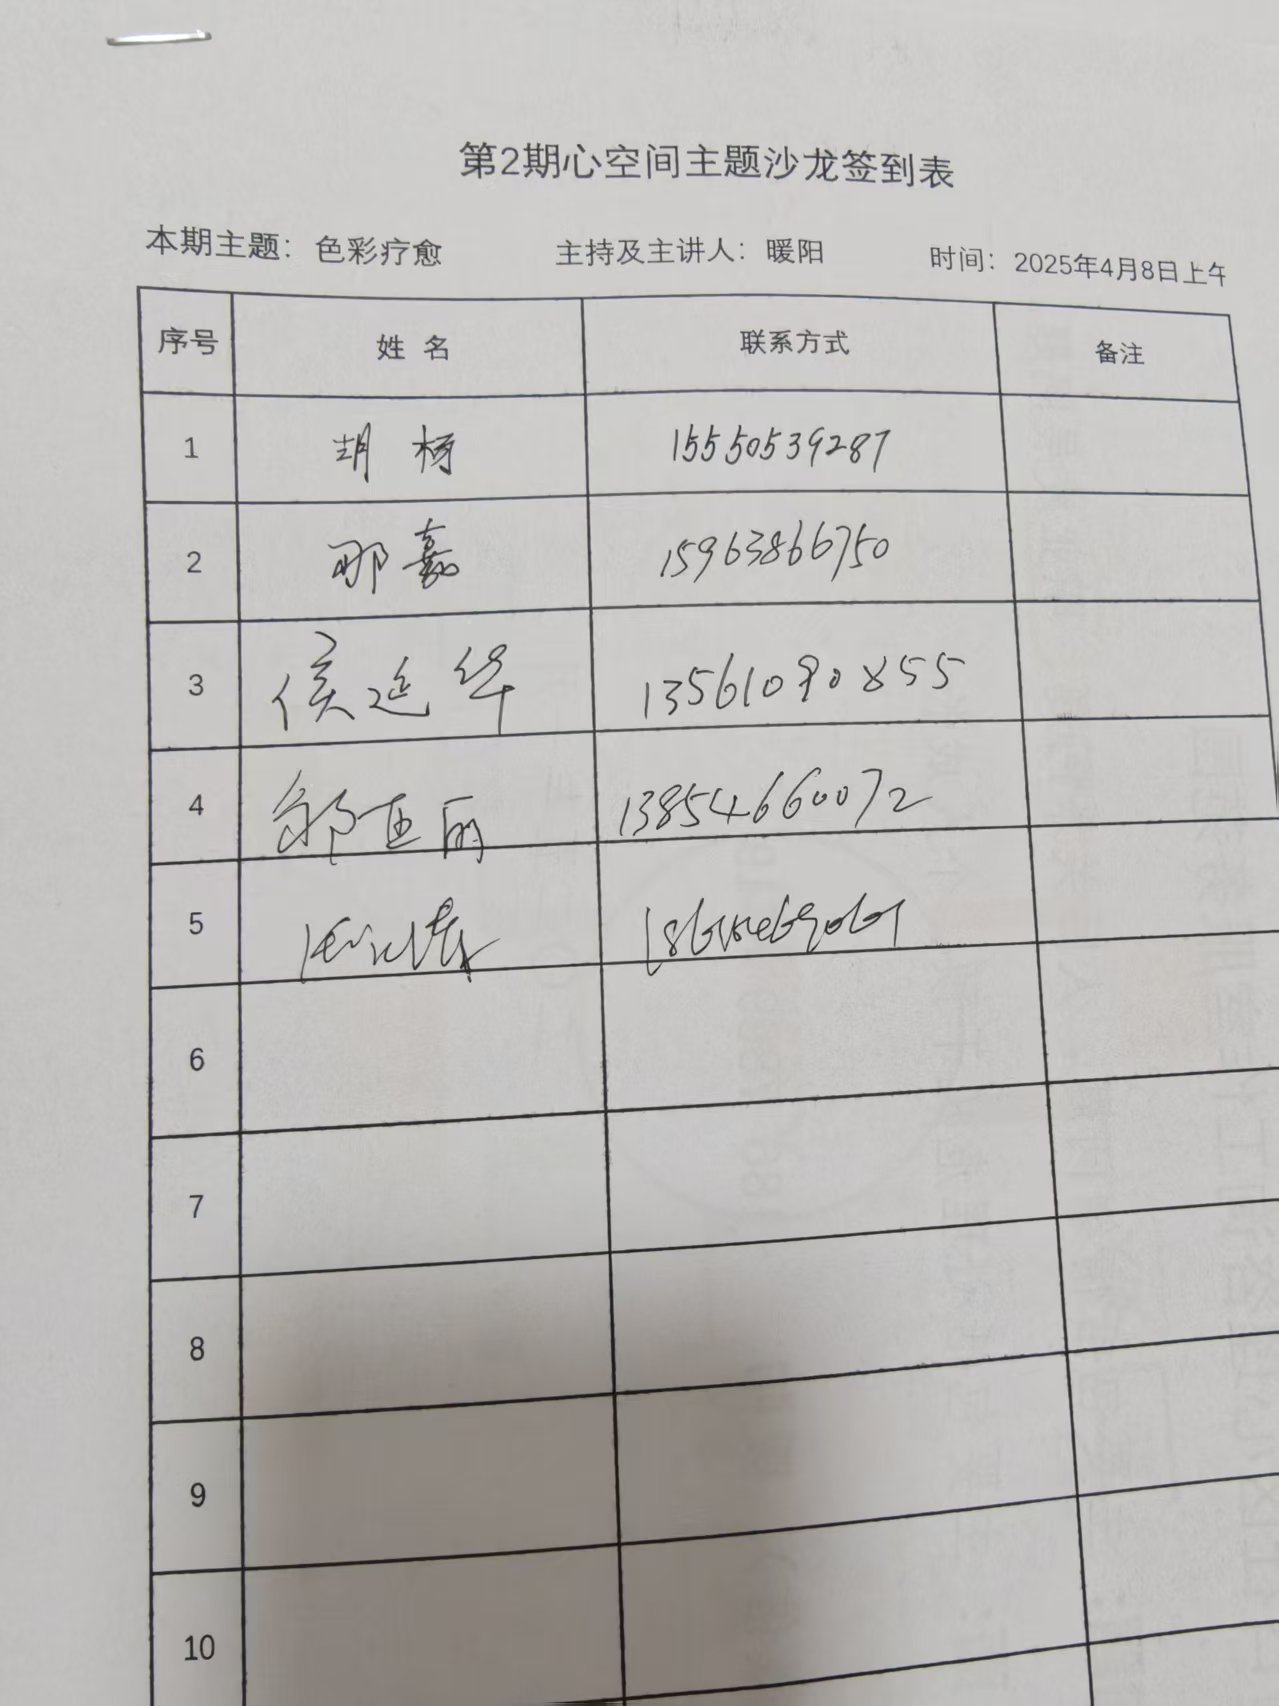 第2期心空间主题沙龙签到表
本期主题：色彩疗愈 主持及主讲人：暖阳 时间：2025年4月8日上午
序号 姓名 联系方式 备注
1 胡杨 15550539287
2 邢嘉 15963866750
3 侯延华 13561090855
4 邹亚丽 13854660072
5
6
7
8
9
10